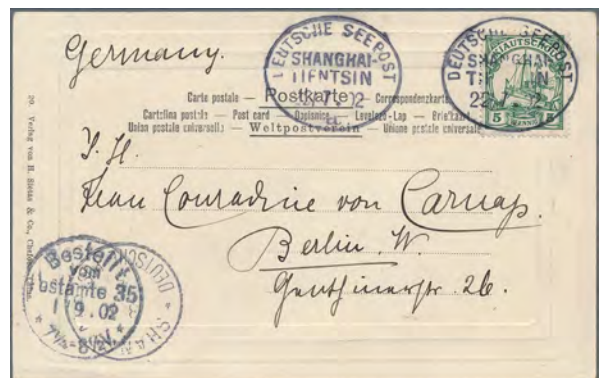 Germany.
DEUTSCHE SEEPOST
SHANGHAI-
TIENTSIN
DEUTSCHE SEEPOST
SHANGHAI
TIENTSIN
22
KIAUTSCHOU
5 5
Carte postale — Postkarte — Correspondenzkarte
Cartolina postale — Post card — Dopisnice — Levelezö-Lap — Briefkaart
Union postale universelle — Weltpostverein — Unione postale universale
20. Verlag von H. Sietas & Co., Chefoo
S. H.
Frau Conradine von Carnap.
Berlin. W.
Genthinerstr. 26.
Bestellt
vom
Postamte 35
1 9.02
7¼-8½V.
DEUTSCH
SHAN